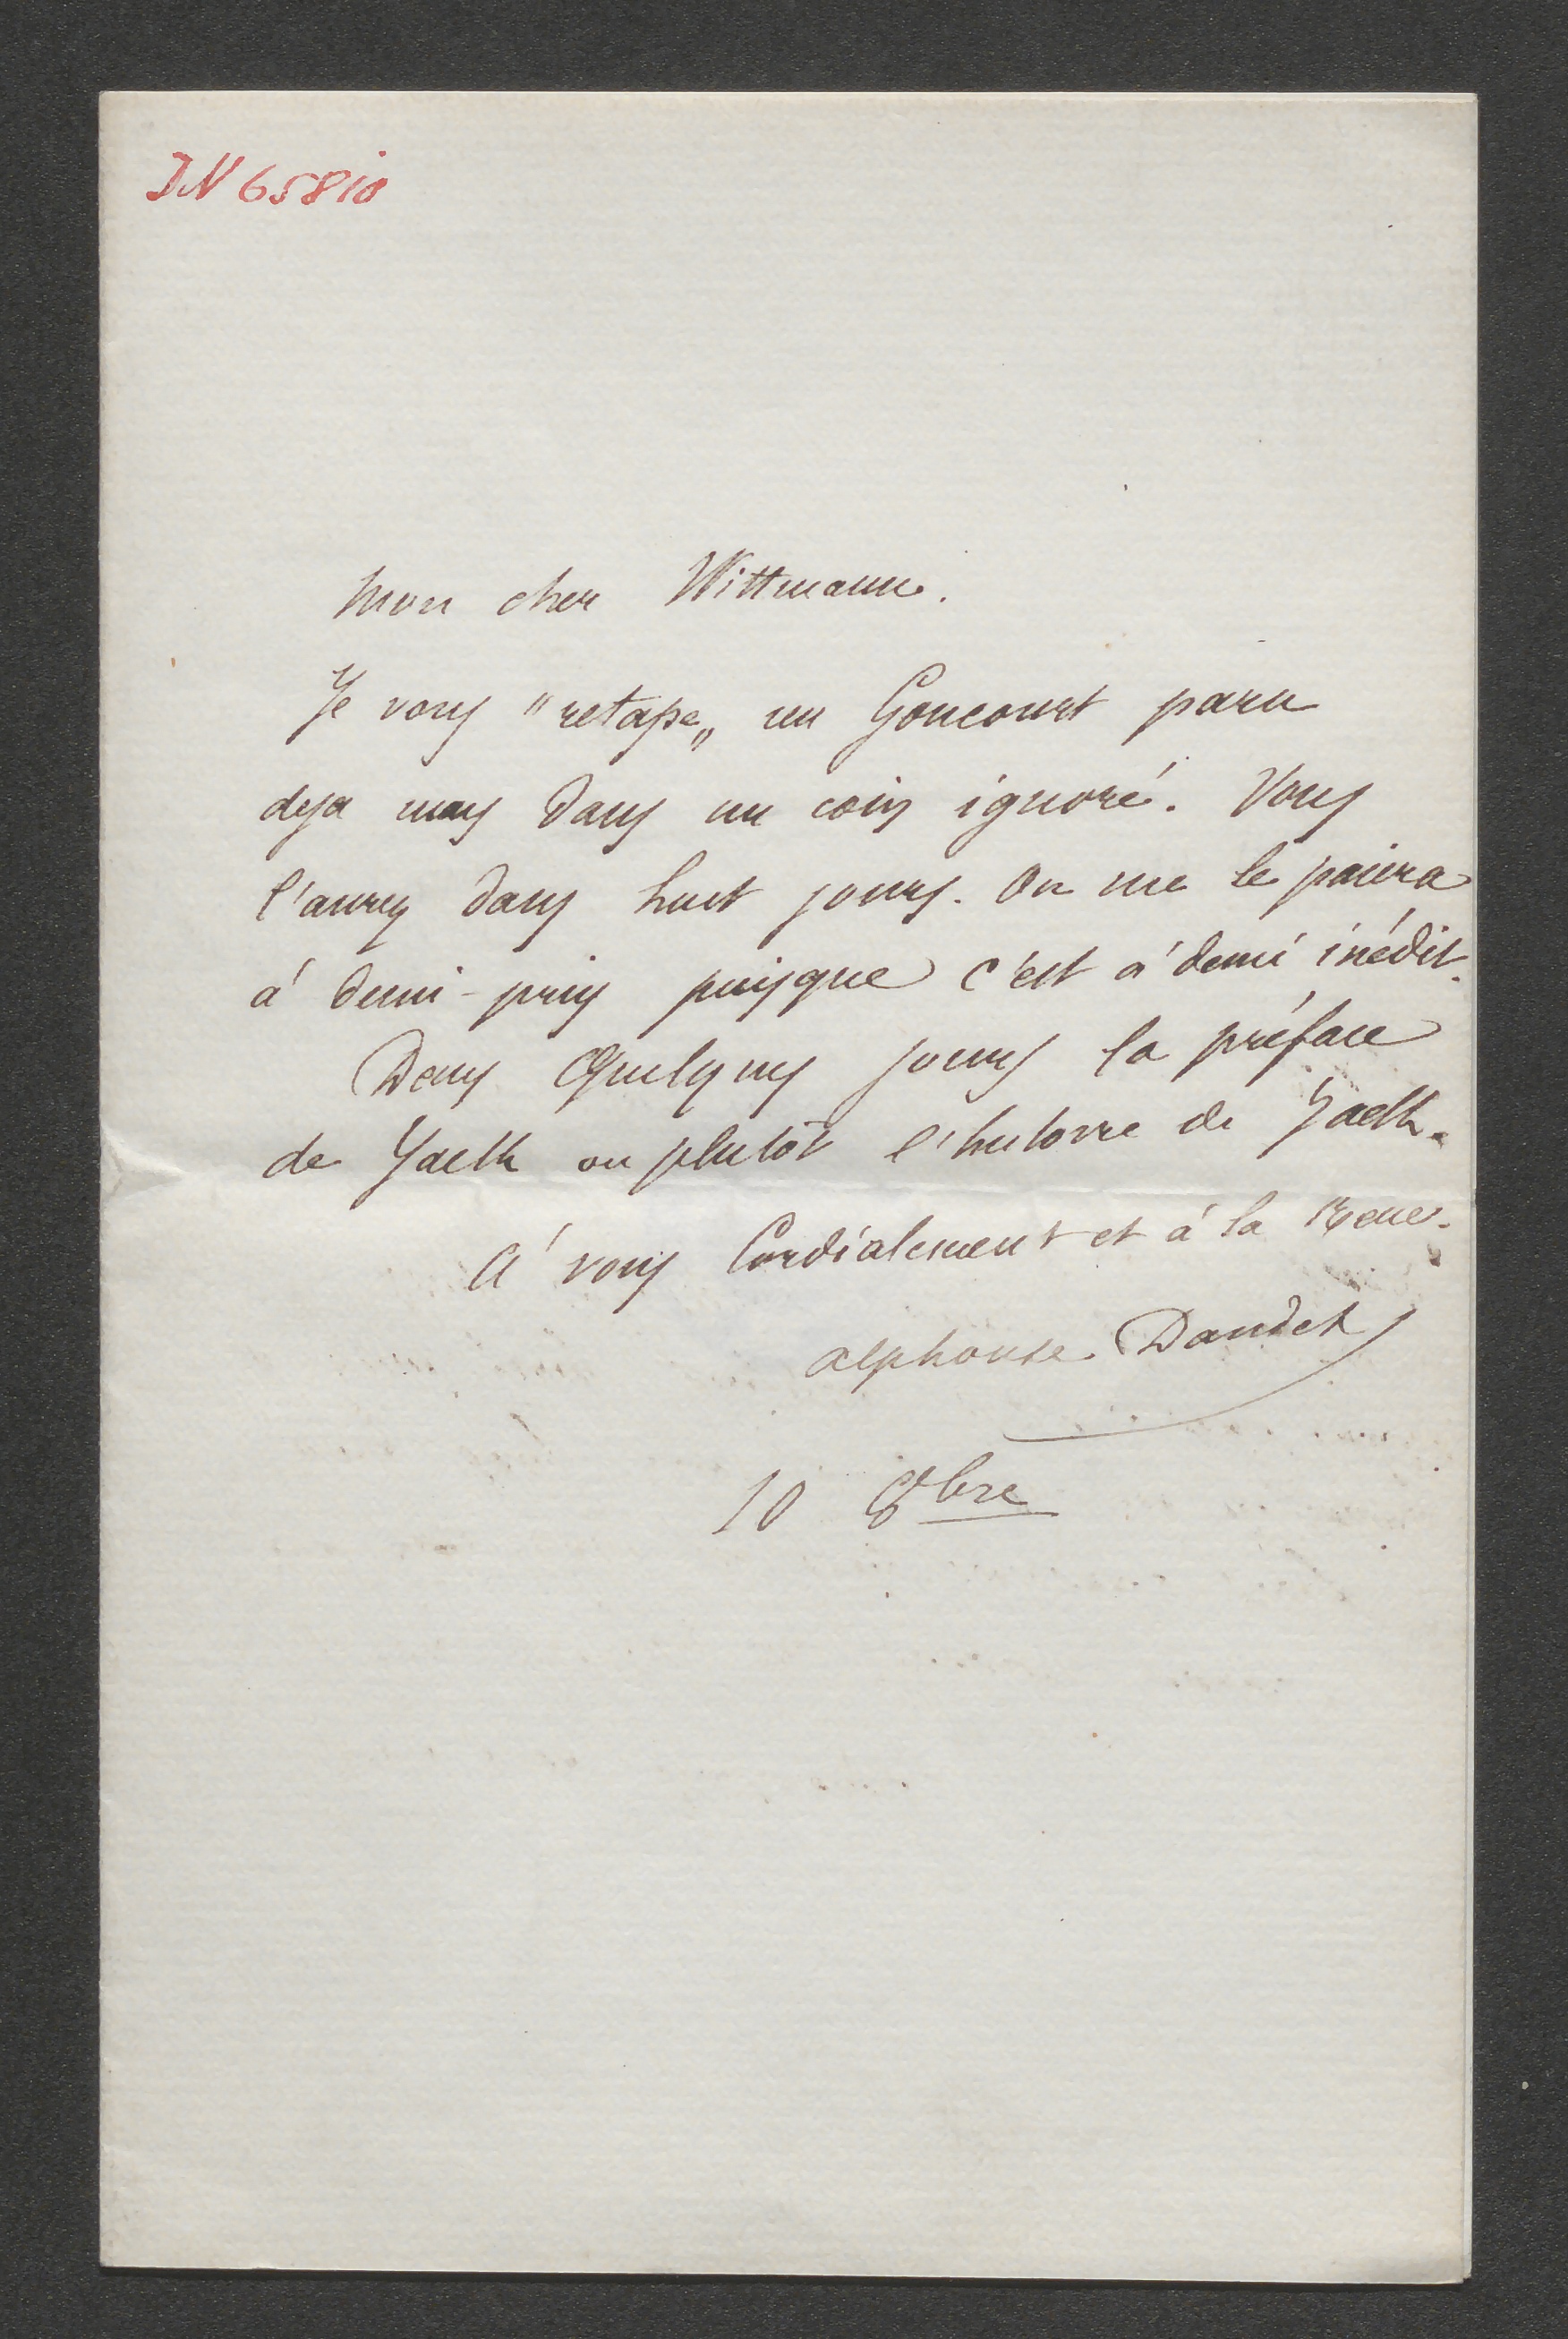 IN 65810
Mon cher Wittmann.
Je vous "retape„ un Goncourt paru
deja mais dans un coin ignoré. Vous
l'aurez dans huit jours. On me le paiera
à demi-prix puisque c'est à demi inédit.
Dans Quelques jours la préface
de Jack ou plutôt l'histoire de Jack.
A vous Cordialement et à la
alphonse Daudet
10 8bre